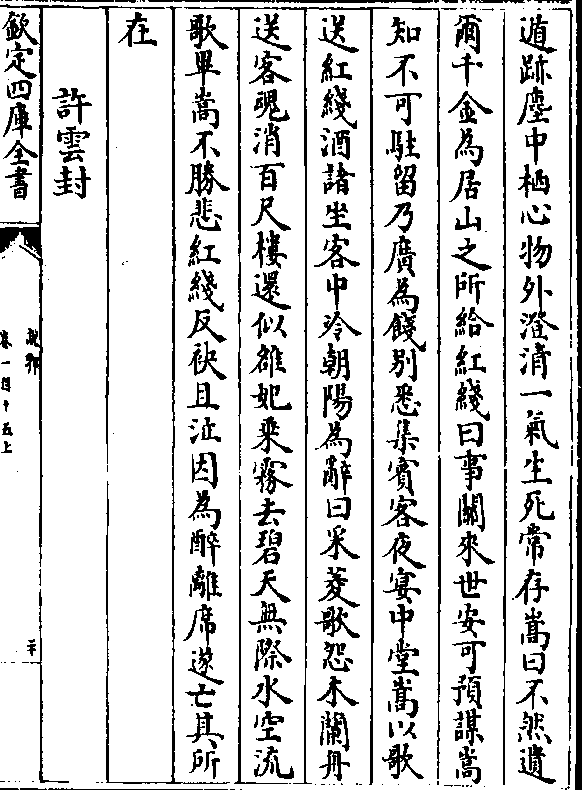 遁跡塵中栖心物外澄清一氣生死常存嵩曰不然遺
爾千金為居山之所給紅綫曰事關來世安可預謀嵩
知不可駐留乃廣為餞别悉集賓客夜宴中堂嵩以歌
送紅綫酒諸坐客中冷朝陽為辭曰采菱歌怨木蘭舟
送客魂消百尺樓還似雒妃乗霧去碧天無際水空流
歌畢嵩不勝悲紅綫反袂且泣因為醉離席遂亡其所
在
許雲封
欽定四庫全書
説郛
卷一百十五上
二十